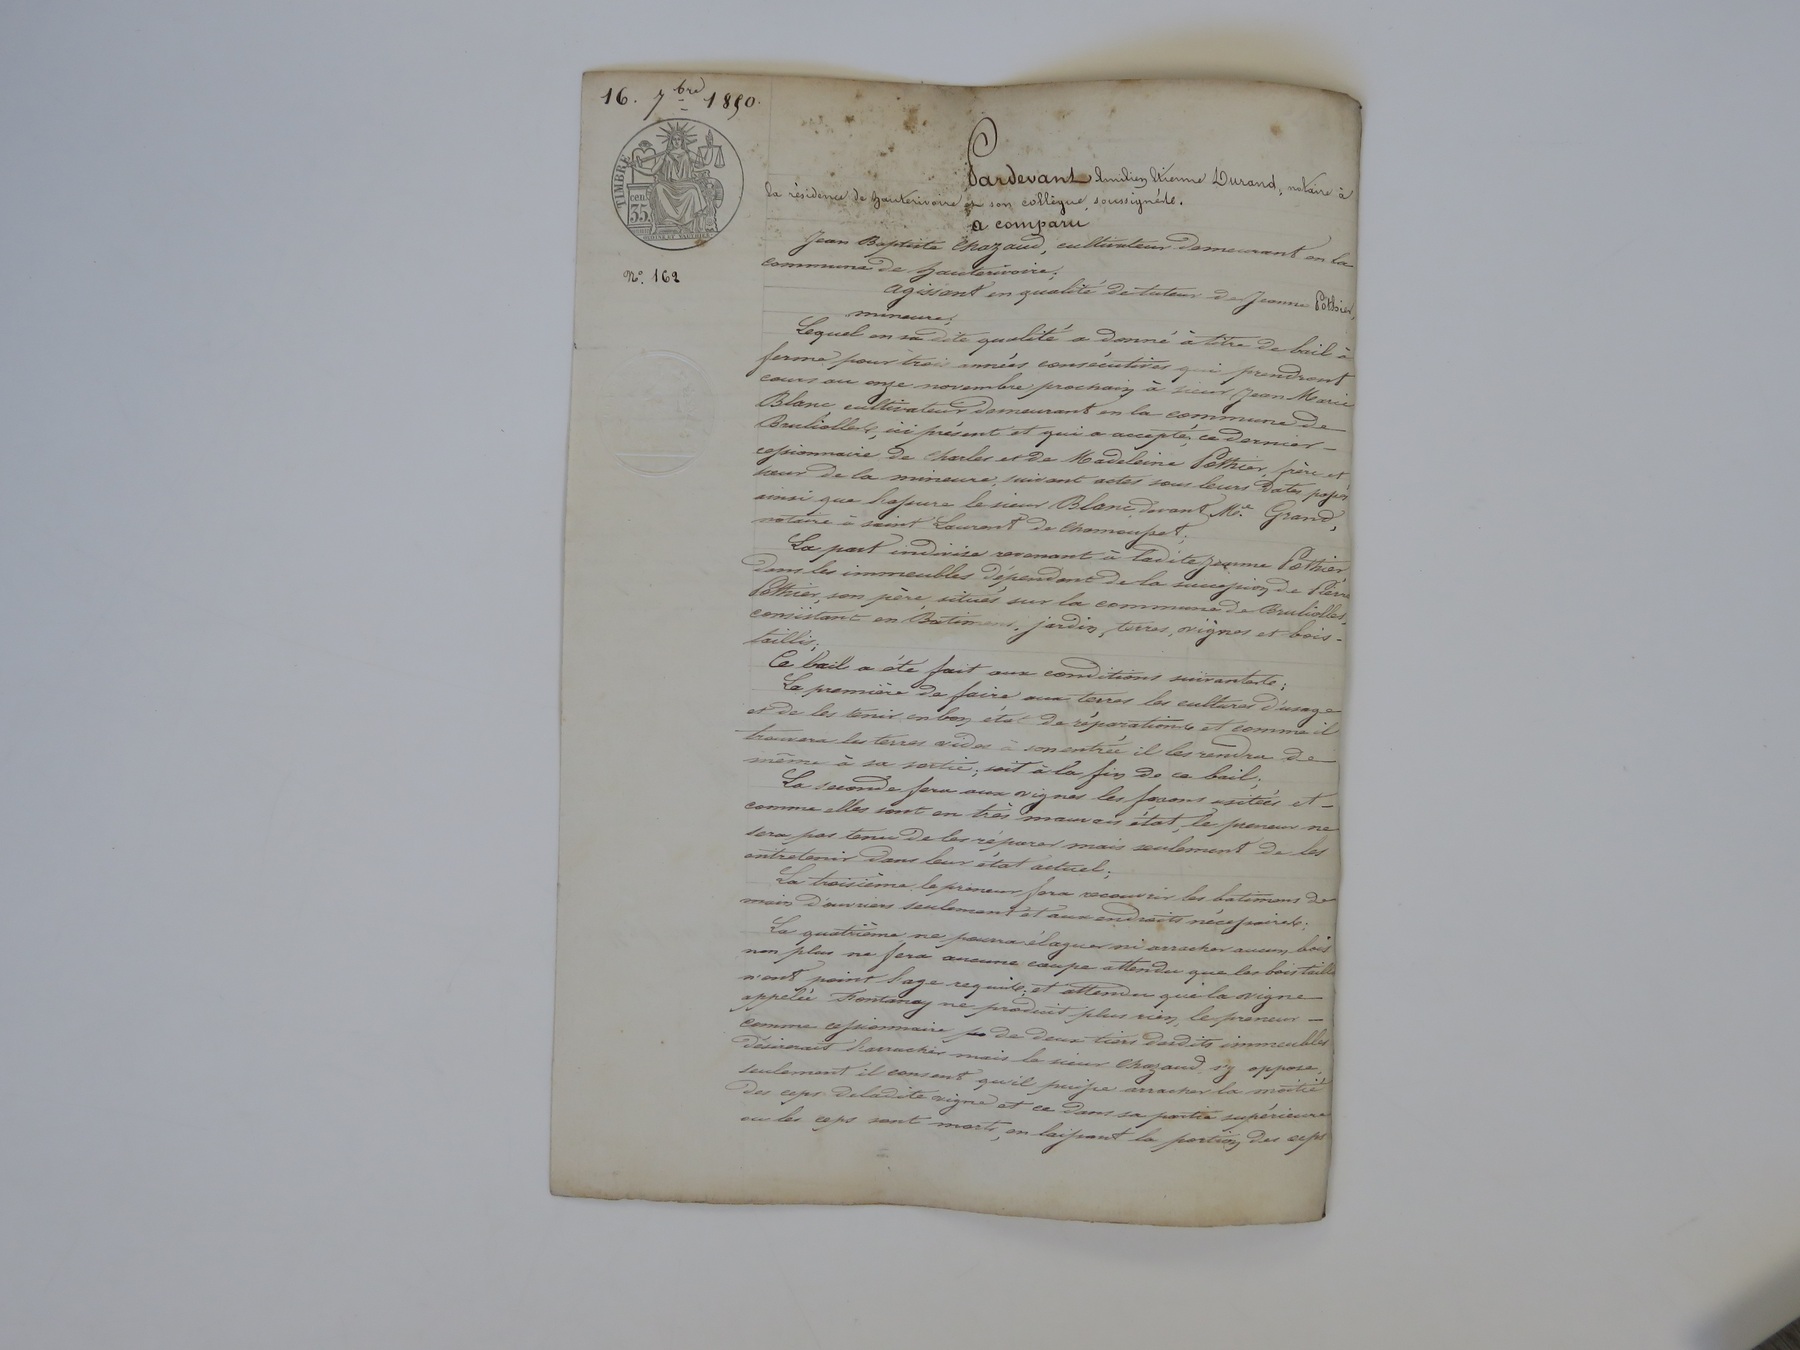 16. 7bre 1850.
TIMBRE
cen
35.
No. 162
Pardevant Etienne Durand, notaire à
la résidence de hauterivoire et son collègue, soussignés.
a comparu
Jean Baptiste Chazaud, cultivateur demeurant en la
commune de hauterivoire;
agissant en qualité de tuteur de Jeanne Pothier,
mineure;
Lequel en sa dite qualité a donné à titre de bail à
ferme pour trois années consécutives qui prendront
cours au onze novembre prochain à sieur Jean Marie
Blanc cultivateur demeurant en la commune de
Brulioles, ici présent et qui a accepté, ce dernier
cessionnaire de Charles et de Madeleine Pothier, frère et
sœur de la mineure, suivant actes sous leurs dates passés
ainsi que l'assure le sieur Blanc, devant Me. Grand,
notaire à saint Laurent de Chamousset;
La part indivise revenant à ladite Jeanne Pothier,
dans les immeubles dépendant de la succession de Pierre
Pothier, son père situés sur la commune de Brulioles,
consistant en Batimens, jardin, terres, vignes et bois-
taillis;
Ce bail a été fait aux conditions suivantes;
La première de faire aux terres les cultures d'usage
et de les tenir en bon état de réparations et comme il
trouvera les terres vides à son entrée il les rendra de
même à sa sortie; soit à la fin de ce bail;
La seconde fera aux vignes les façons usitées et
comme elles sont en très mauvais état, le preneur ne
sera pas tenu de les réparer mais seulement de les
entretenir dans leur état actuel;
La troisième le preneur fera recouvrir les batimens de
main d'ouvriers seulement et aux endroits nécessaires;
La quatrième ne pourra élaguer ni arracher aucun bois
non plus ne fera aucune coupe attendu que les bois taillis
n'ont point l'age requis; et attendu que la vigne
appelée Fontanay ne produit plus rien, le preneur
comme cessionnaire de deux tiers desdits immeubles
désirerait l'arracher mais le sieur Chazaud s'y oppose,
seulement il consent qu'il puisse arracher la moitié
des ceps de ladite vigne et ce dans sa partie supérieure
ou les ceps sont morts, en laissant la portion des ceps